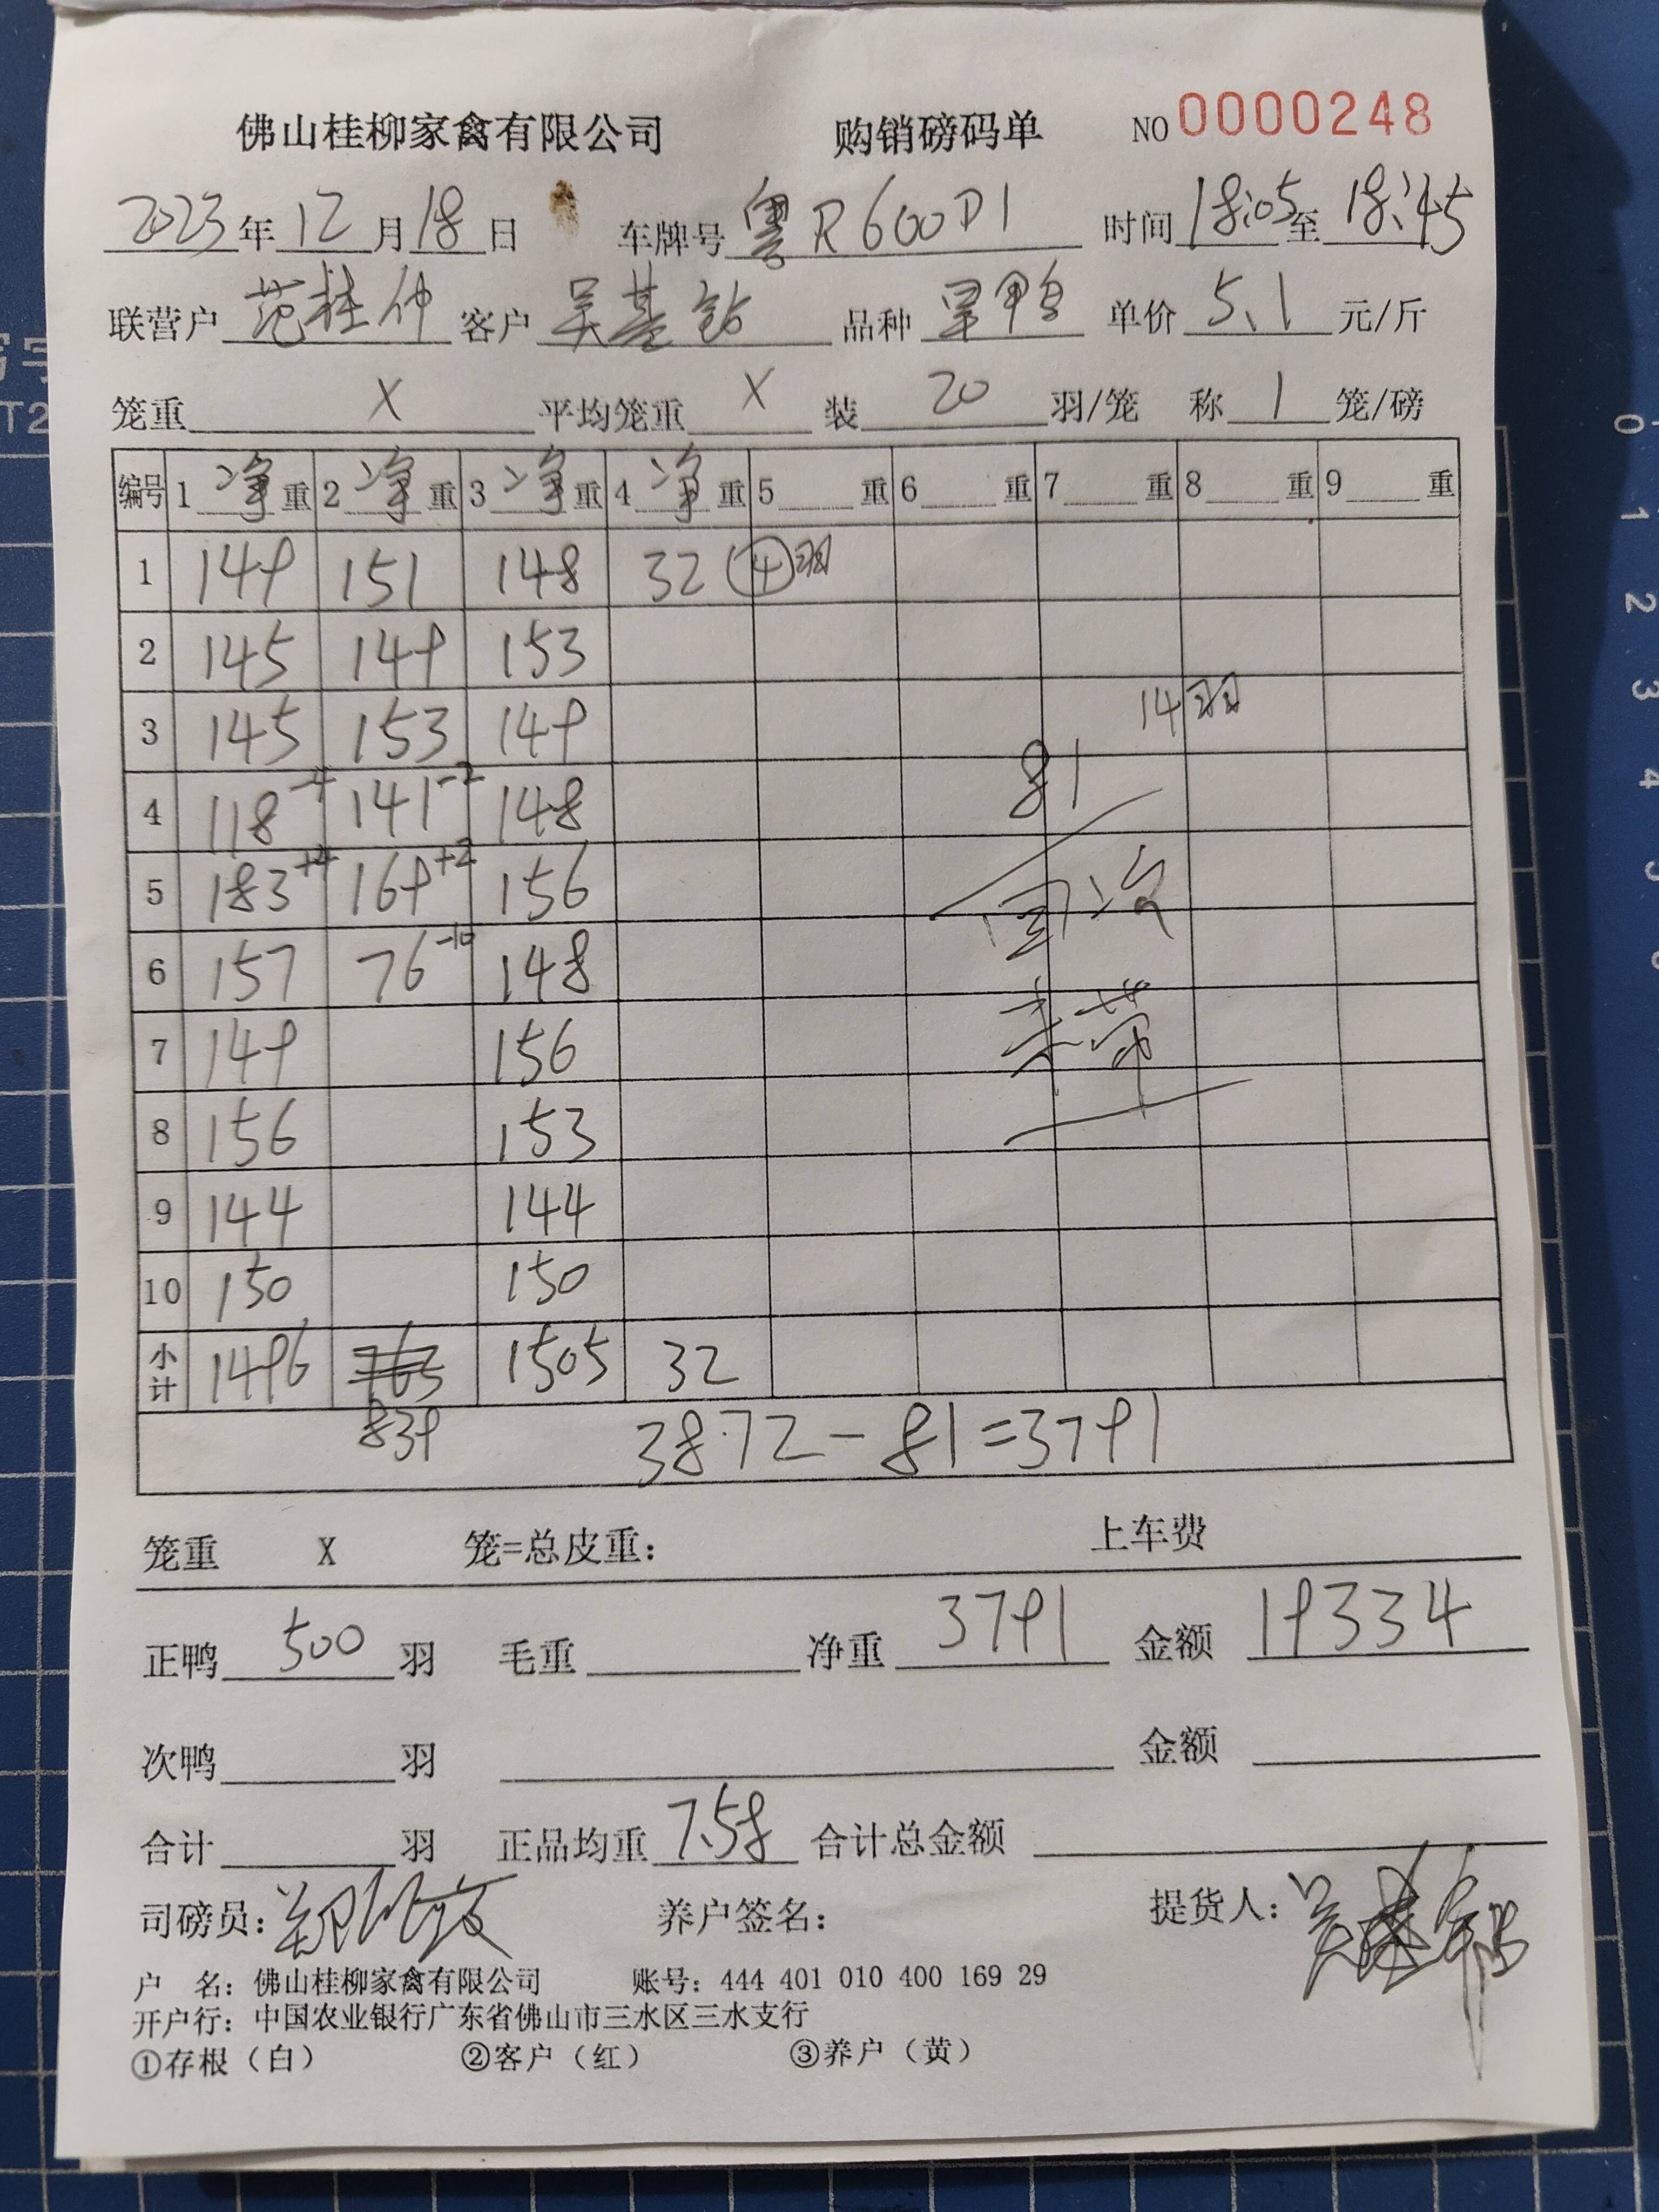 佛山桂柳家禽有限公司 购销磅码单 NO 0000248
2023年12月18日 车牌号 粤R600D1 时间 18:05 至 18:45
联营户 范桂仲 客户 吴基钻 品种 旱鸭 单价 5.1 元/斤
笼重 X 平均笼重 X 装 20 羽/笼 称 1 笼/磅
编号 1 净重 2 净重 3 净重 4 净重 5 重 6 重 7 重 8 重 9 重
1 149 151 148 32 ④羽
2 145 149 153
3 145 153 149 14羽
4 118-4 141-2 148 81
5 183+4 169+2 156
6 157 76-10 148
7 149 156
8 156 153
9 144 144
10 150 150
小计 1496 763 1505 32
839 3872-81=3791
笼重 X 笼=总皮重: 上车费
正鸭 500 羽 毛重 净重 3791 金额 19334
次鸭 羽 金额
合计 羽 正品均重 7.58 合计总金额
司磅员: 养户签名: 提货人:
户 名: 佛山桂柳家禽有限公司 账号: 444 401 010 400 169 29
开户行: 中国农业银行广东省佛山市三水区三水支行
①存根（白） ②客户（红） ③养户（黄）
0
1
2
3
4
5
6